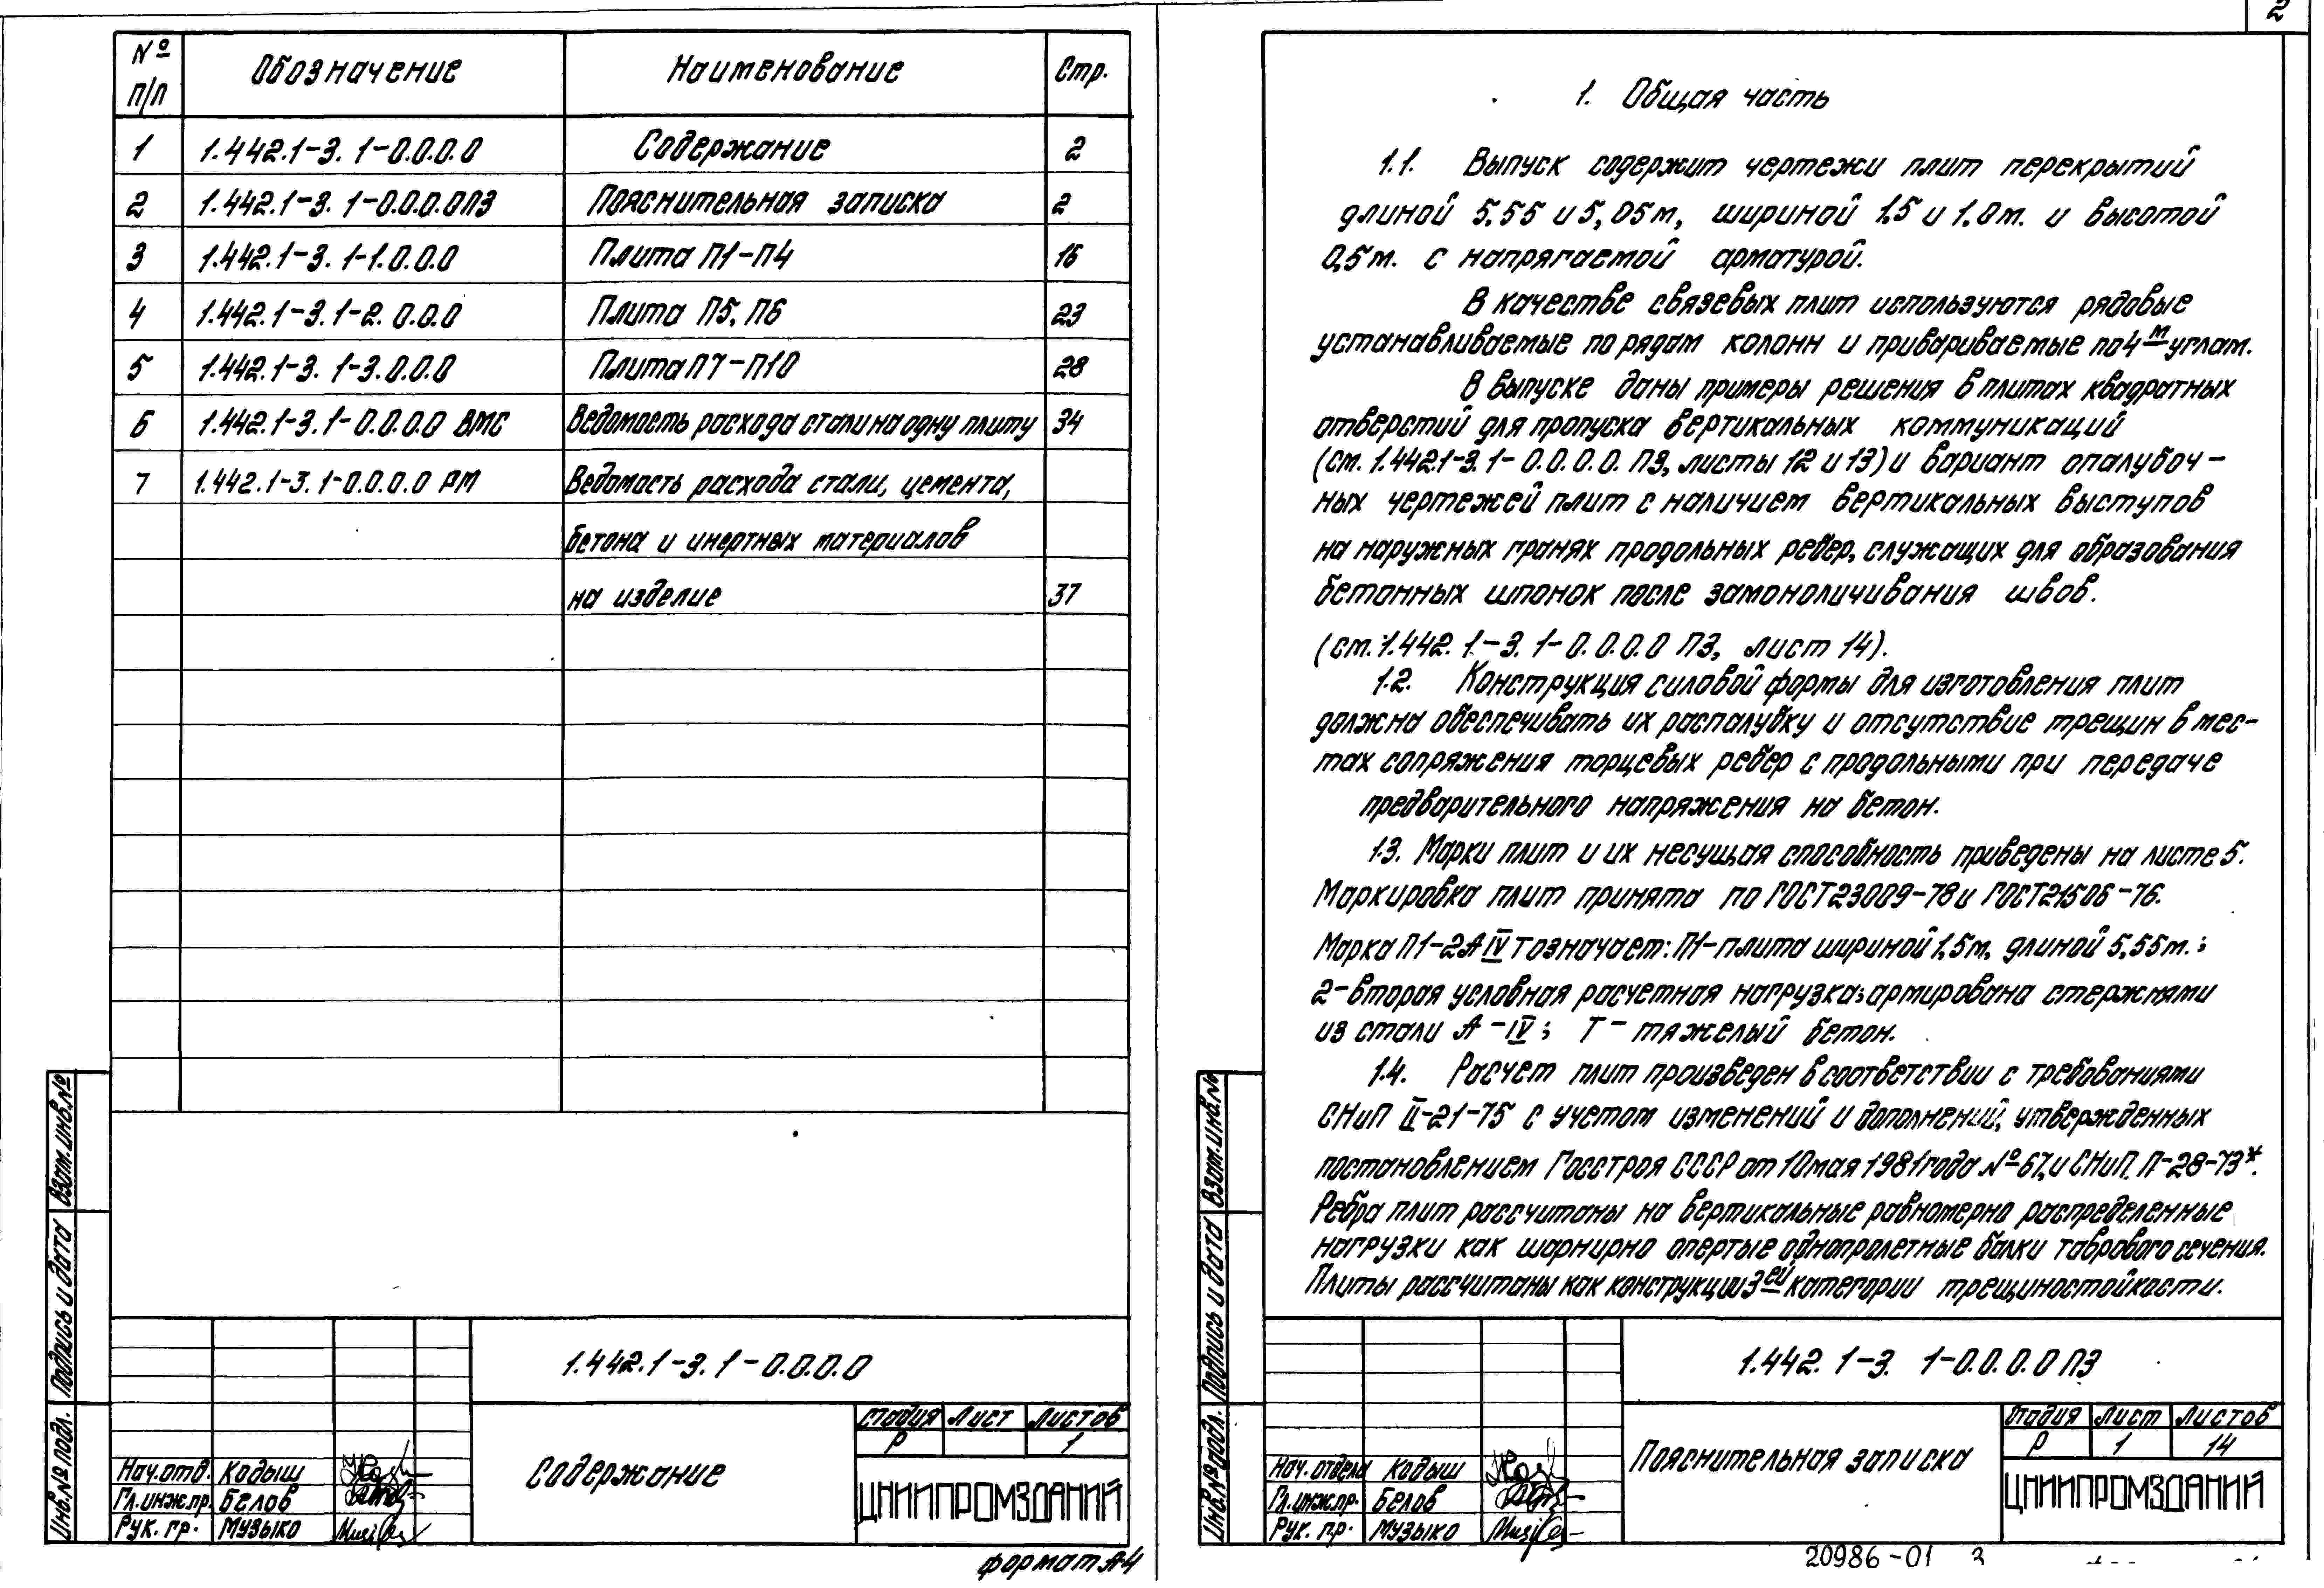 № п/п Обозначение Наименование Стр.
1 1.442.1-3. 1-0.0.0.0 Содержание 2
2 1.442.1-3. 1-0.0.0.0ПЗ Пояснительная записка 2
3 1.442.1-3. 1-1.0.0.0 Плита П1-П4 16
4 1.442.1-3.1-2.0.0.0 Плита П5, П6 23
5 1.442.1-3. 1-3.0.0.0 Плита П7-П10 28
6 1.442.1-3.1-0.0.0.0 ВМС Ведомость расхода стали на одну плиту 34
7 1.442.1-3.1-0.0.0.0 РМ Ведомость расхода стали, цемента,
бетона и инертных материалов
на изделие 37
Взам.инв.№
Подпись и дата
Инв.№ подл.
1.442.1-3. 1-0.0.0.0
Содержание
Стадия Лист Листов
Р 1
ЦНИИПРОМЗДАНИЙ
Нач.отд. Кодыш
Гл.инж.пр. Белов
Рук. гр. Музыко
формат А4
2
1. Общая часть
1.1. Выпуск содержит чертежи плит перекрытий
длиной 5,55 и 5,05м, шириной 1,5 и 1,0м. и высотой
0,5м. с напрягаемой арматурой.
В качестве связевых плит используются рядовые
устанавливаемые по рядам колонн и привариваемые по 4м углам.
В выпуске даны примеры решения в плитах квадратных
отверстий для пропуска вертикальных коммуникаций
(см. 1.442.1-3. 1-0.0.0.0. ПЗ, листы 12 и 13) и вариант опалубоч-
ных чертежей плит с наличием вертикальных выступов
на наружных гранях продольных ребер, служащих для образования
бетонных шпонок после замоноличивания швов.
(см. 1.442. 1-3. 1-0.0.0.0 ПЗ, лист 14).
1.2. Конструкция силовой формы для изготовления плит
должна обеспечивать их распалубку и отсутствие трещин в мес-
тах сопряжения торцевых ребер с продольными при передаче
предварительного напряжения на бетон.
1.3. Марки плит и их несущая способность приведены на листе 5.
Маркировка плит принята по ГОСТ 23009-78 и ГОСТ 21506-76.
Марка П1-2АIVТ означает: П1-плита шириной 1,5м, длиной 5,55м.;
2-вторая условная расчетная нагрузка; армирована стержнями
из стали А-IV; Т- тяжелый бетон.
1.4. Расчет плит произведен в соответствии с требованиями
СНиП II-21-75 с учетом изменений и дополнений, утвержденных
постановлением Госстроя СССР от 10 мая 1981 года №67, и СНиП II-28-73*.
Ребра плит рассчитаны на вертикальные равномерно распределенные
нагрузки как шарнирно опертые однопролетные балки таврового сечения.
Плиты рассчитаны как конструкции 3ей категории трещиностойкости.
Взам.инв.№
Подпись и дата
Инв.№ подл.
1.442. 1-3. 1-0.0.0.0 ПЗ
Пояснительная записка
Стадия Лист Листов
Р 1 14
ЦНИИПРОМЗДАНИЙ
Нач. отдела Кодыш
Гл.инж.пр. Белов
Рук. гр. Музыко
20986-01 3